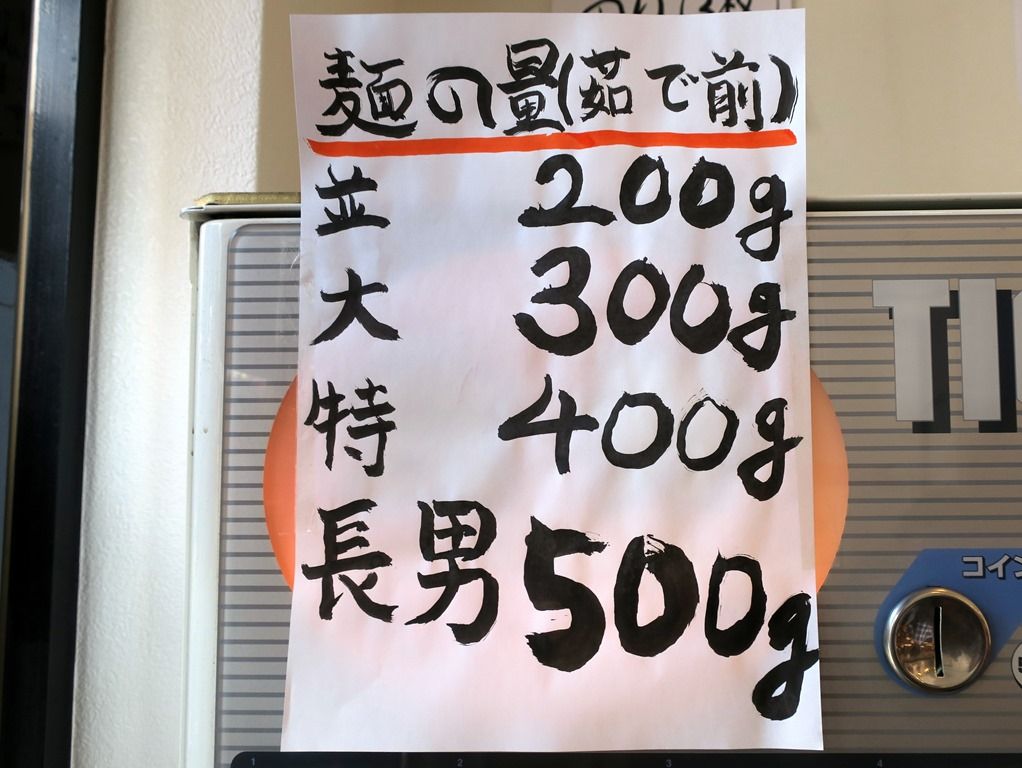 麺の量(茹で前)
並 200g
大 300g
特 400g
長男 500g
コイン
1 2 3 4